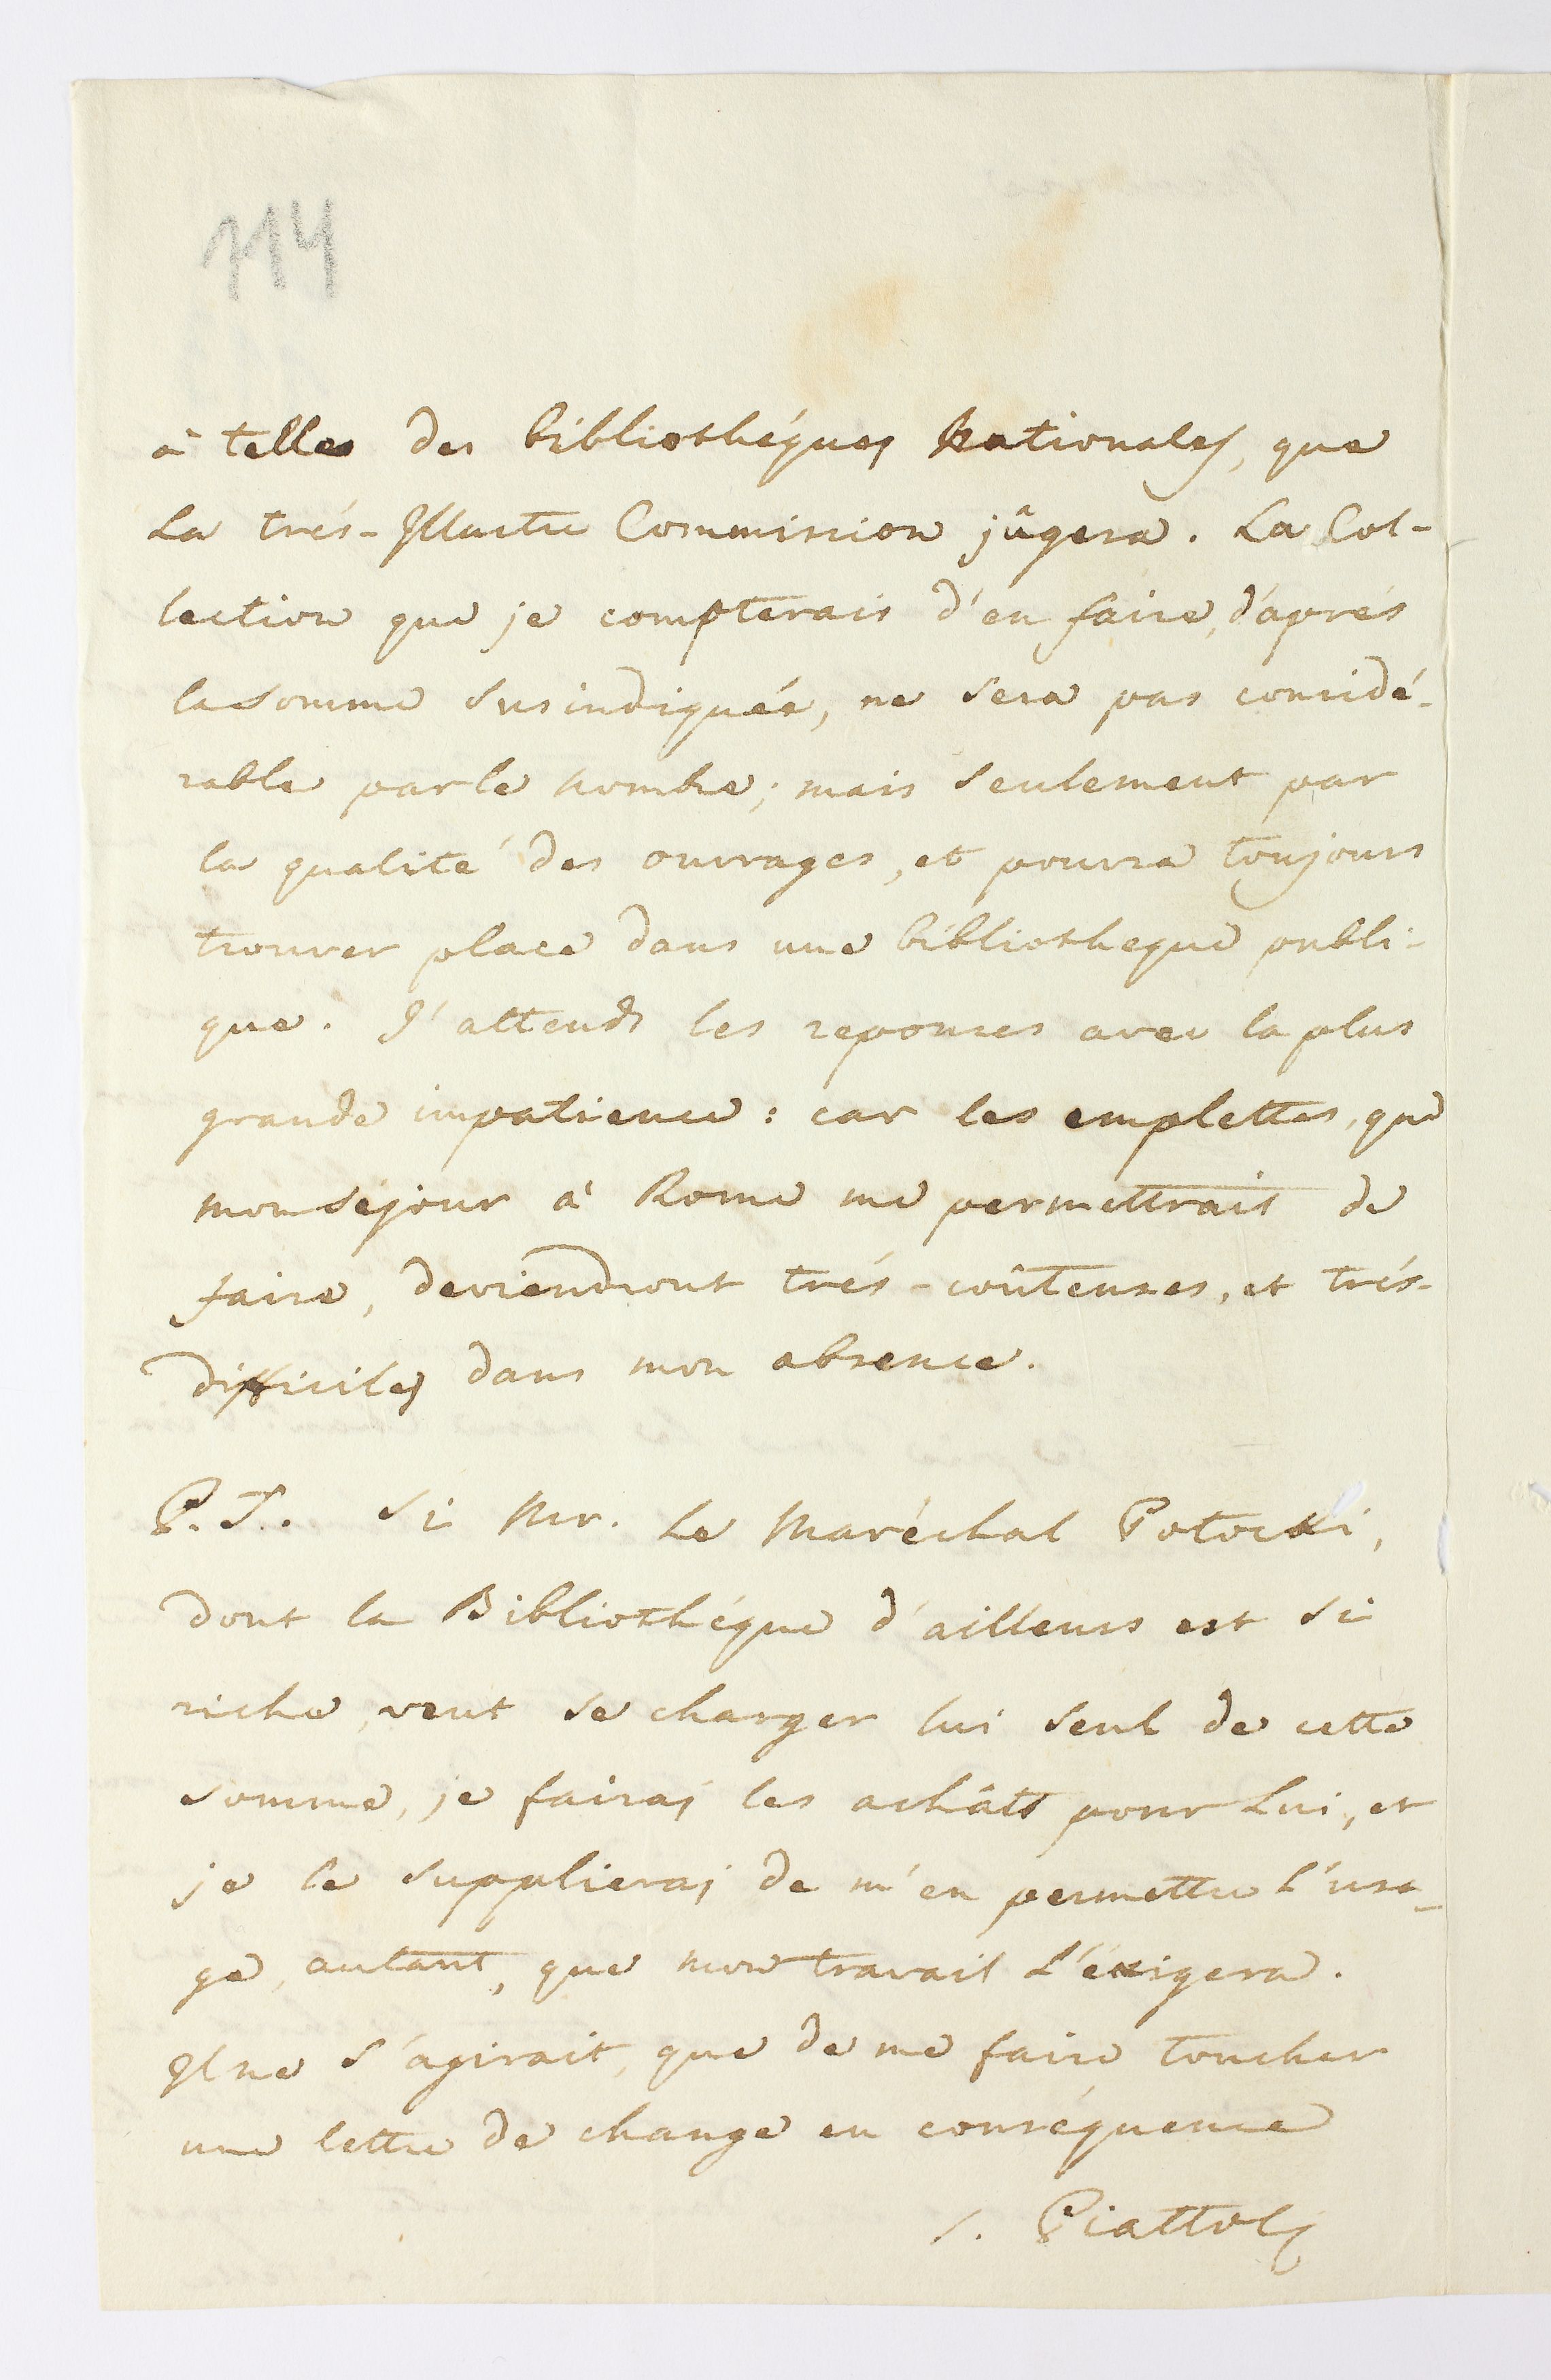 114
à telles des bibliothéques Nationales, que
La trés-Illustre Commission jûgera. La Col-
lection que je compterais d'en faire, d'aprés
la somme susindiquée, ne sera pas considé-
rable par le nombre; mais seulement par
la qualité des ouvrages, et pourra toujours
trouver place dans une bibliotheque publi-
que. J'attends les reponses avec la plus
grande impatience: car les emplettes, que
mon sejour à Rome me permettrait de
faire, deviendront trés-coûteuses, et trés-
difficiles dans mon absence.
P.S. Si Mr. Le Maréchal Potocki,
dont la Bibliothéque d'ailleurs est si
riche, veut se charger lui seul de cette
somme, je fairaj les achâts pour Lui, et
je le supplieraj de m'en permettre l'usa-
ge, autant, que mon travail l'éxigera.
Il ne s'agirait, que de me faire toucher
une lettre de change en conséquence
S. Piattoli